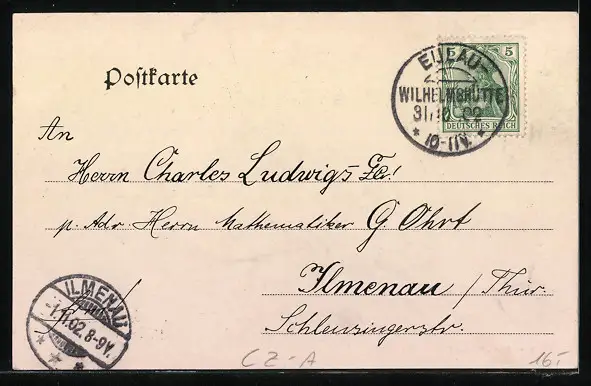 Postkarte
5 5
DEUTSCHES REICH
EULAU-
WILHELMSHÜTTE
31/10 02
* 10-11V. *
An
Herrn Charles Ludwigs
p. Adr. Herrn Mathematiker G. Ohrt
Ilmenau / Thür.
Schleusingerstr.
ILMENAU
1.11.02. 8-9V.
* * *
CZ-A
16.-